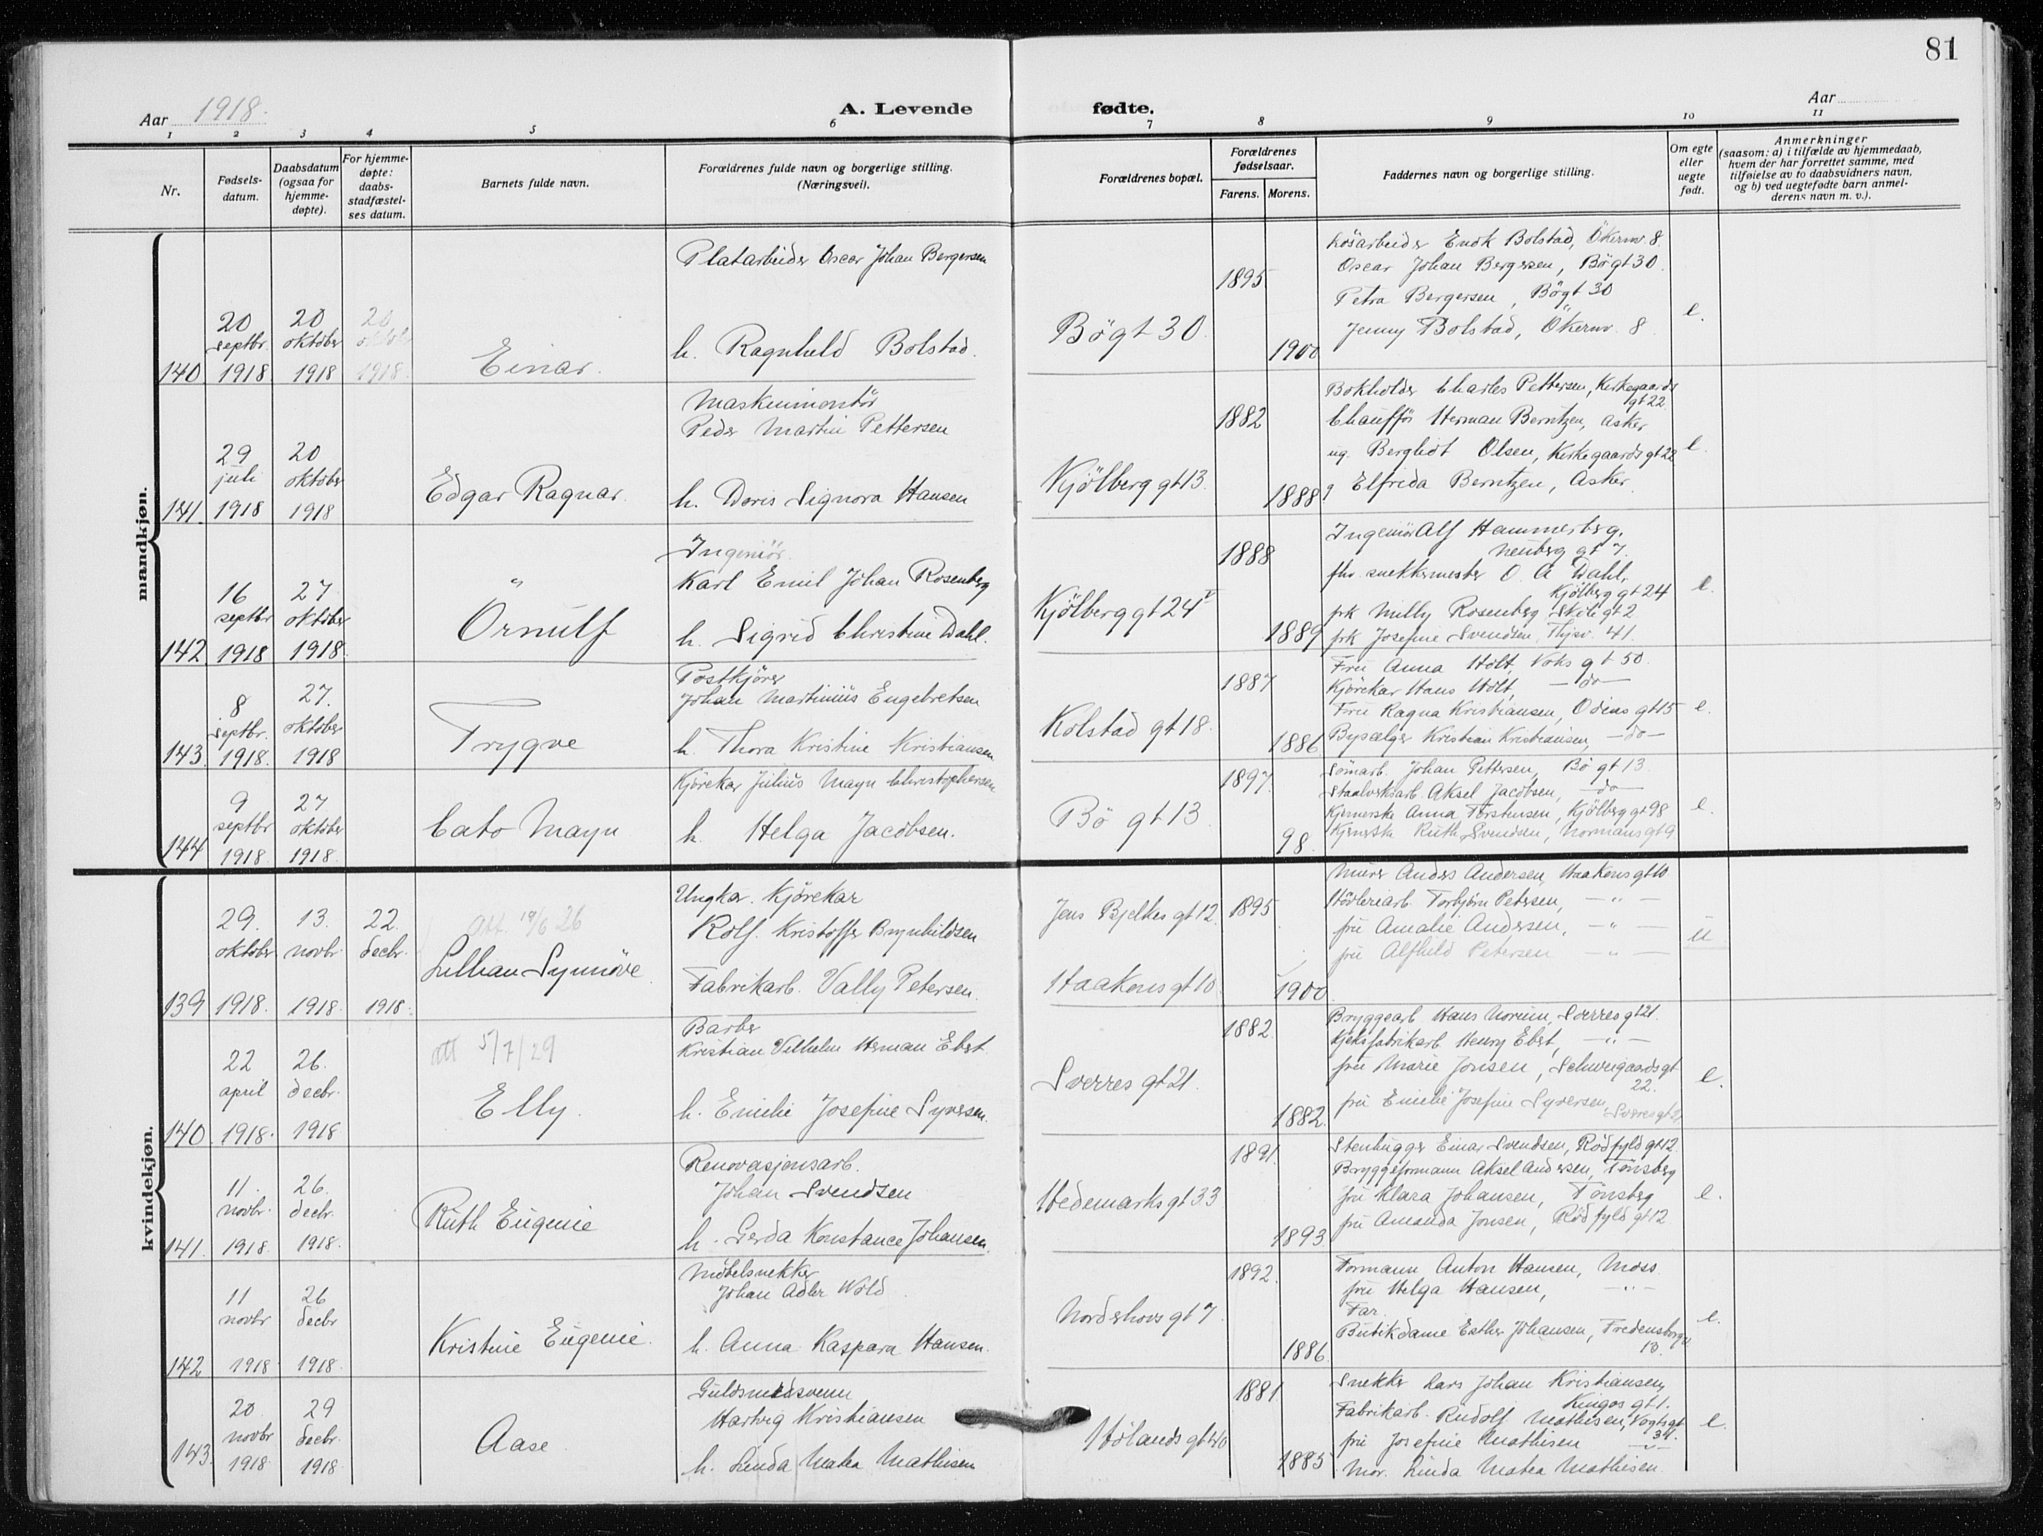 81
Aar 1918.
A. Levende fødte.
Aar
1 2 3 4 5 6 7 8 9 10 11
Nr.
Fødsels-
datum.
Daabsdatum
(ogsaa for
hjemme-
døpte).
For hjemme-
døpte:
daabs-
stadfæstel-
ses datum.
Barnets fulde navn.
Forældrenes fulde navn og borgerlige stilling.
(Næringsvei).
Forældrenes bopæl.
Forældrenes
fødselsaar.
Farens. Morens.
Faddernes navn og borgerlige stilling.
Om egte
eller
uegte
født.
Anmerkninger
(saasom: a) i tilfælde av hjemmedaab,
hvem der har forrettet samme, med
tilføielse av to daabsvidners navn,
og b) ved uegtefødte barn anmel-
derens navn m. v.).
mandkjøn.
140
20 septbr. 1918
20 oktober 1918
20 oktober 1918.
Einar.
Platarbeider Oscar Johan Bergersen
h. Ragnhild Bolstad.
Bøgt 30.
1895
1900
Løsarbeider Enok Bolstad, Økernv 8.
Oscar Johan Bergersen, Bøgt 30.
Petra Bergersen, Bøgt 30
Jenny Bolstad, Økernv. 8.
e.
141.
29 juli 1918
20 oktober 1918
Edgar Ragnar.
Maskinmontör
Peder Martin Pettersen
h. Doris Signora Hansen
Kjölberggt 13.
1882
1888
Bokholder Charles Pettersen, Kirkegaards
gt 22
Chauffør Herman Berntzen, Asker
ug. Bergliot Olsen, Kirkegaardsgt 22
" Elfrida Berntzen, Asker.
e.
142
16 septbr 1918
27 oktober 1918.
Örnulf
Ingeniör.
Karl Emil Johan Rosenberg
h. Sigrid Christine Dahl.
Kjölberggt 24
1888
1889
Ingeniör Alf Hammerberg,
Neuberg gt 7.
fhv. snekkermester O. A Dahl,
Kjölberggt 24
frk Milly Rosenberg, gt 2
frk Josefine Svendsen, 41.
e.
143.
8 septbr. 1918.
27. oktober 1918
Trygve
Postkjører
Johan Martinius Engebretsen
h. Thora Kristine Kristiansen
Kolstad gt 18.
1887
1886
Fru Anna Holt, Voks gt 50.
Kjørekar Hans Holt, — do —
Fru Ragna Kristiansen, Odins gt 15
Bysælger Kristian Kristiansen, — do —
e.
144
9 septbr 1918
27 oktober 1918.
Cato Mayn
Kjørekar Julius Mayn Christophersen
h. Helga Jacobsen.
Bø gt 13
1897
98.
Sömarb. Johan Pettersen, Bø gt 13.
Staalverksarb. Aksel Jacobsen, — do —
Anna Torstensen, Kjölberggt 98
Ruth Svendsen, Normansgt 9
e.
kvindekjøn.
139
29. oktober 1918.
13. novbr. 1918.
22. decbr. 1918.
Att. 19/6 26
Lillian Synnöve
Ungkar. Kjørekar
Rolf Kristoffer Brynhildsen
Fabrikarb. Vally Petersen.
Jens Bjelkes gt 12
Haakonsgt 10.
1895
1900
Murer Anders Andersen, Haakonsgt 10
Høvleriarb. Torbjörn Petersen, — " —
fru Amalie Andersen, — " —
fru Alfhild Petersen — " —
u
140
22 april 1918.
26. decbr. 1918
att 5/7/29
Elly.
Barber
Kristian Vilhelm Herman Ebst
h. Emilie Josefine Syversen.
Sverres gt 21.
1882
1882.
Bryggearb Hans Norum, Sverresgt 21.
Kjeksfabrikarb. Henry Ebst, — " —
fru Marie Jonsen, Schweigaardsgt
22.
fru Emelie Josefine Syversen,
Sverresgt 21
e.
141.
11. novbr. 1918.
26. decbr. 1918.
Ruth Eugenie
Renovasjonsarb.
Johan Svendsen
h. Gerda Konstance Johansen.
Hedemarks gt 33
1891.
1893
Stenhugger Einar Svendsen, Rödfyldgt 12.
Bryggeformann Aksel Andersen, Tönsberg
fru Klara Johansen, Tønsberg
fru Amanda Jonsen, Rödfyldgt 12
e.
142
11 novbr 1918
26 decbr 1918.
Kristine Eugenie.
Møbelsnekker
Johan Adler Wold
h. Anna Kaspara Hansen.
Nordshovs gt 7
1892.
1886.
Formann Anton Hansen, Moss.
fru Helga Hansen, — " —
Far.
Butikdame Esther Johansen, Fredensborgv.
10.
e.
143.
20 novbr 1918
29 decbr. 1918
Aase
Guldsmedsvenn
Hartvig Kristiansen
h. Linda Matea Mathisen
Hølands gt 40
1881
1885
Snekker Lars Johan Kristiansen,
Kingos gt 1.
Fabrikarb. Rudolf Mathisen, Vogtsgt
34.
fru Josefine Mathisen — " —
Mor. Linda Matea Mathisen
e.